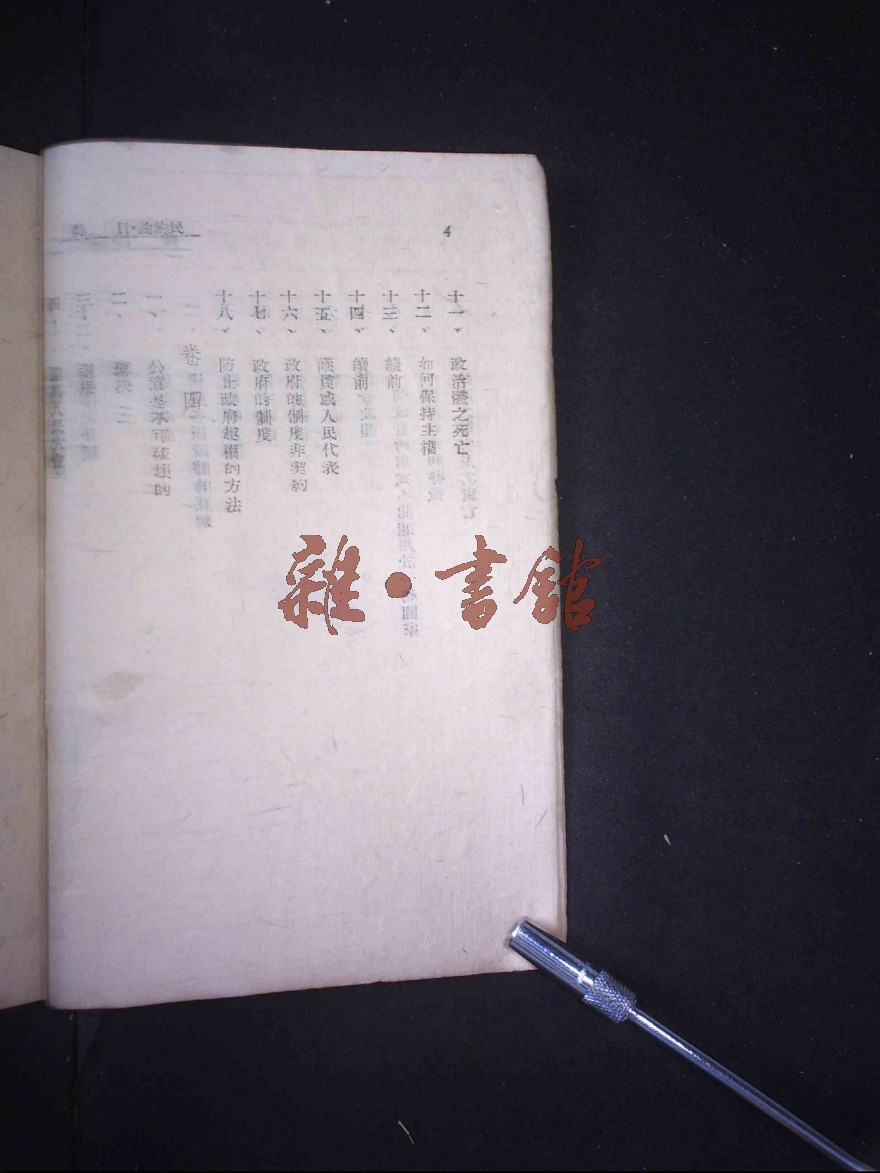 4
民約論·目
十一、政治體之死亡
十二、如何保持主權
十三、續前
十四、續前
十五、議員或人民代表
十六、政府的制度非契約
十七、政府的制度
十八、防止政府越權的方法
卷四
一、公意是不可破壞的
二、票決
三、選舉
四、
雜·書館